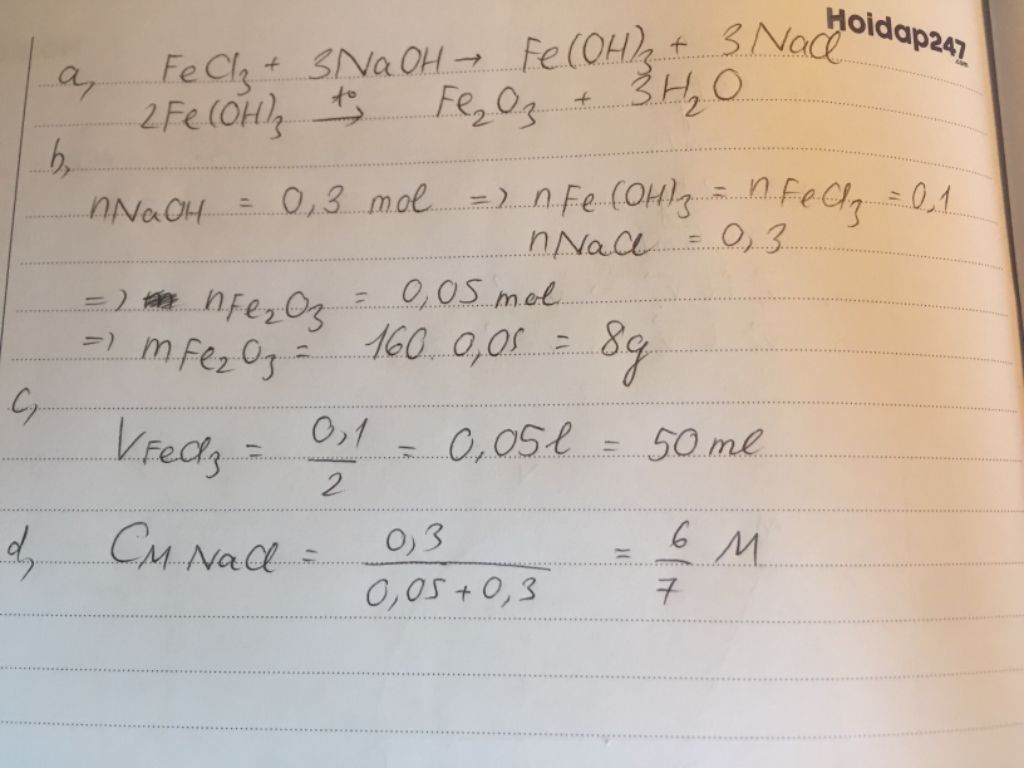 Hoidap247
.com
a, FeCl₃ + 3NaOH → Fe(OH)₃ + 3NaCl
2Fe(OH)₃ →(t°) Fe₂O₃ + 3H₂O
b,
nNaOH = 0,3 mol => nFe(OH)₃ = nFeCl₃ = 0,1
nNaCl = 0,3
=> nFe₂O₃ = 0,05 mol
=> mFe₂O₃ = 160.0,05 = 8g
c,
VFeCl₃ = 0,1/2 = 0,05l = 50ml
d, CM NaCl = 0,3/(0,05 + 0,3) = 6/7 M